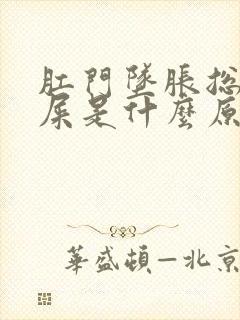 肛門墜脹总
屎是什麼原
華盛頓—北京